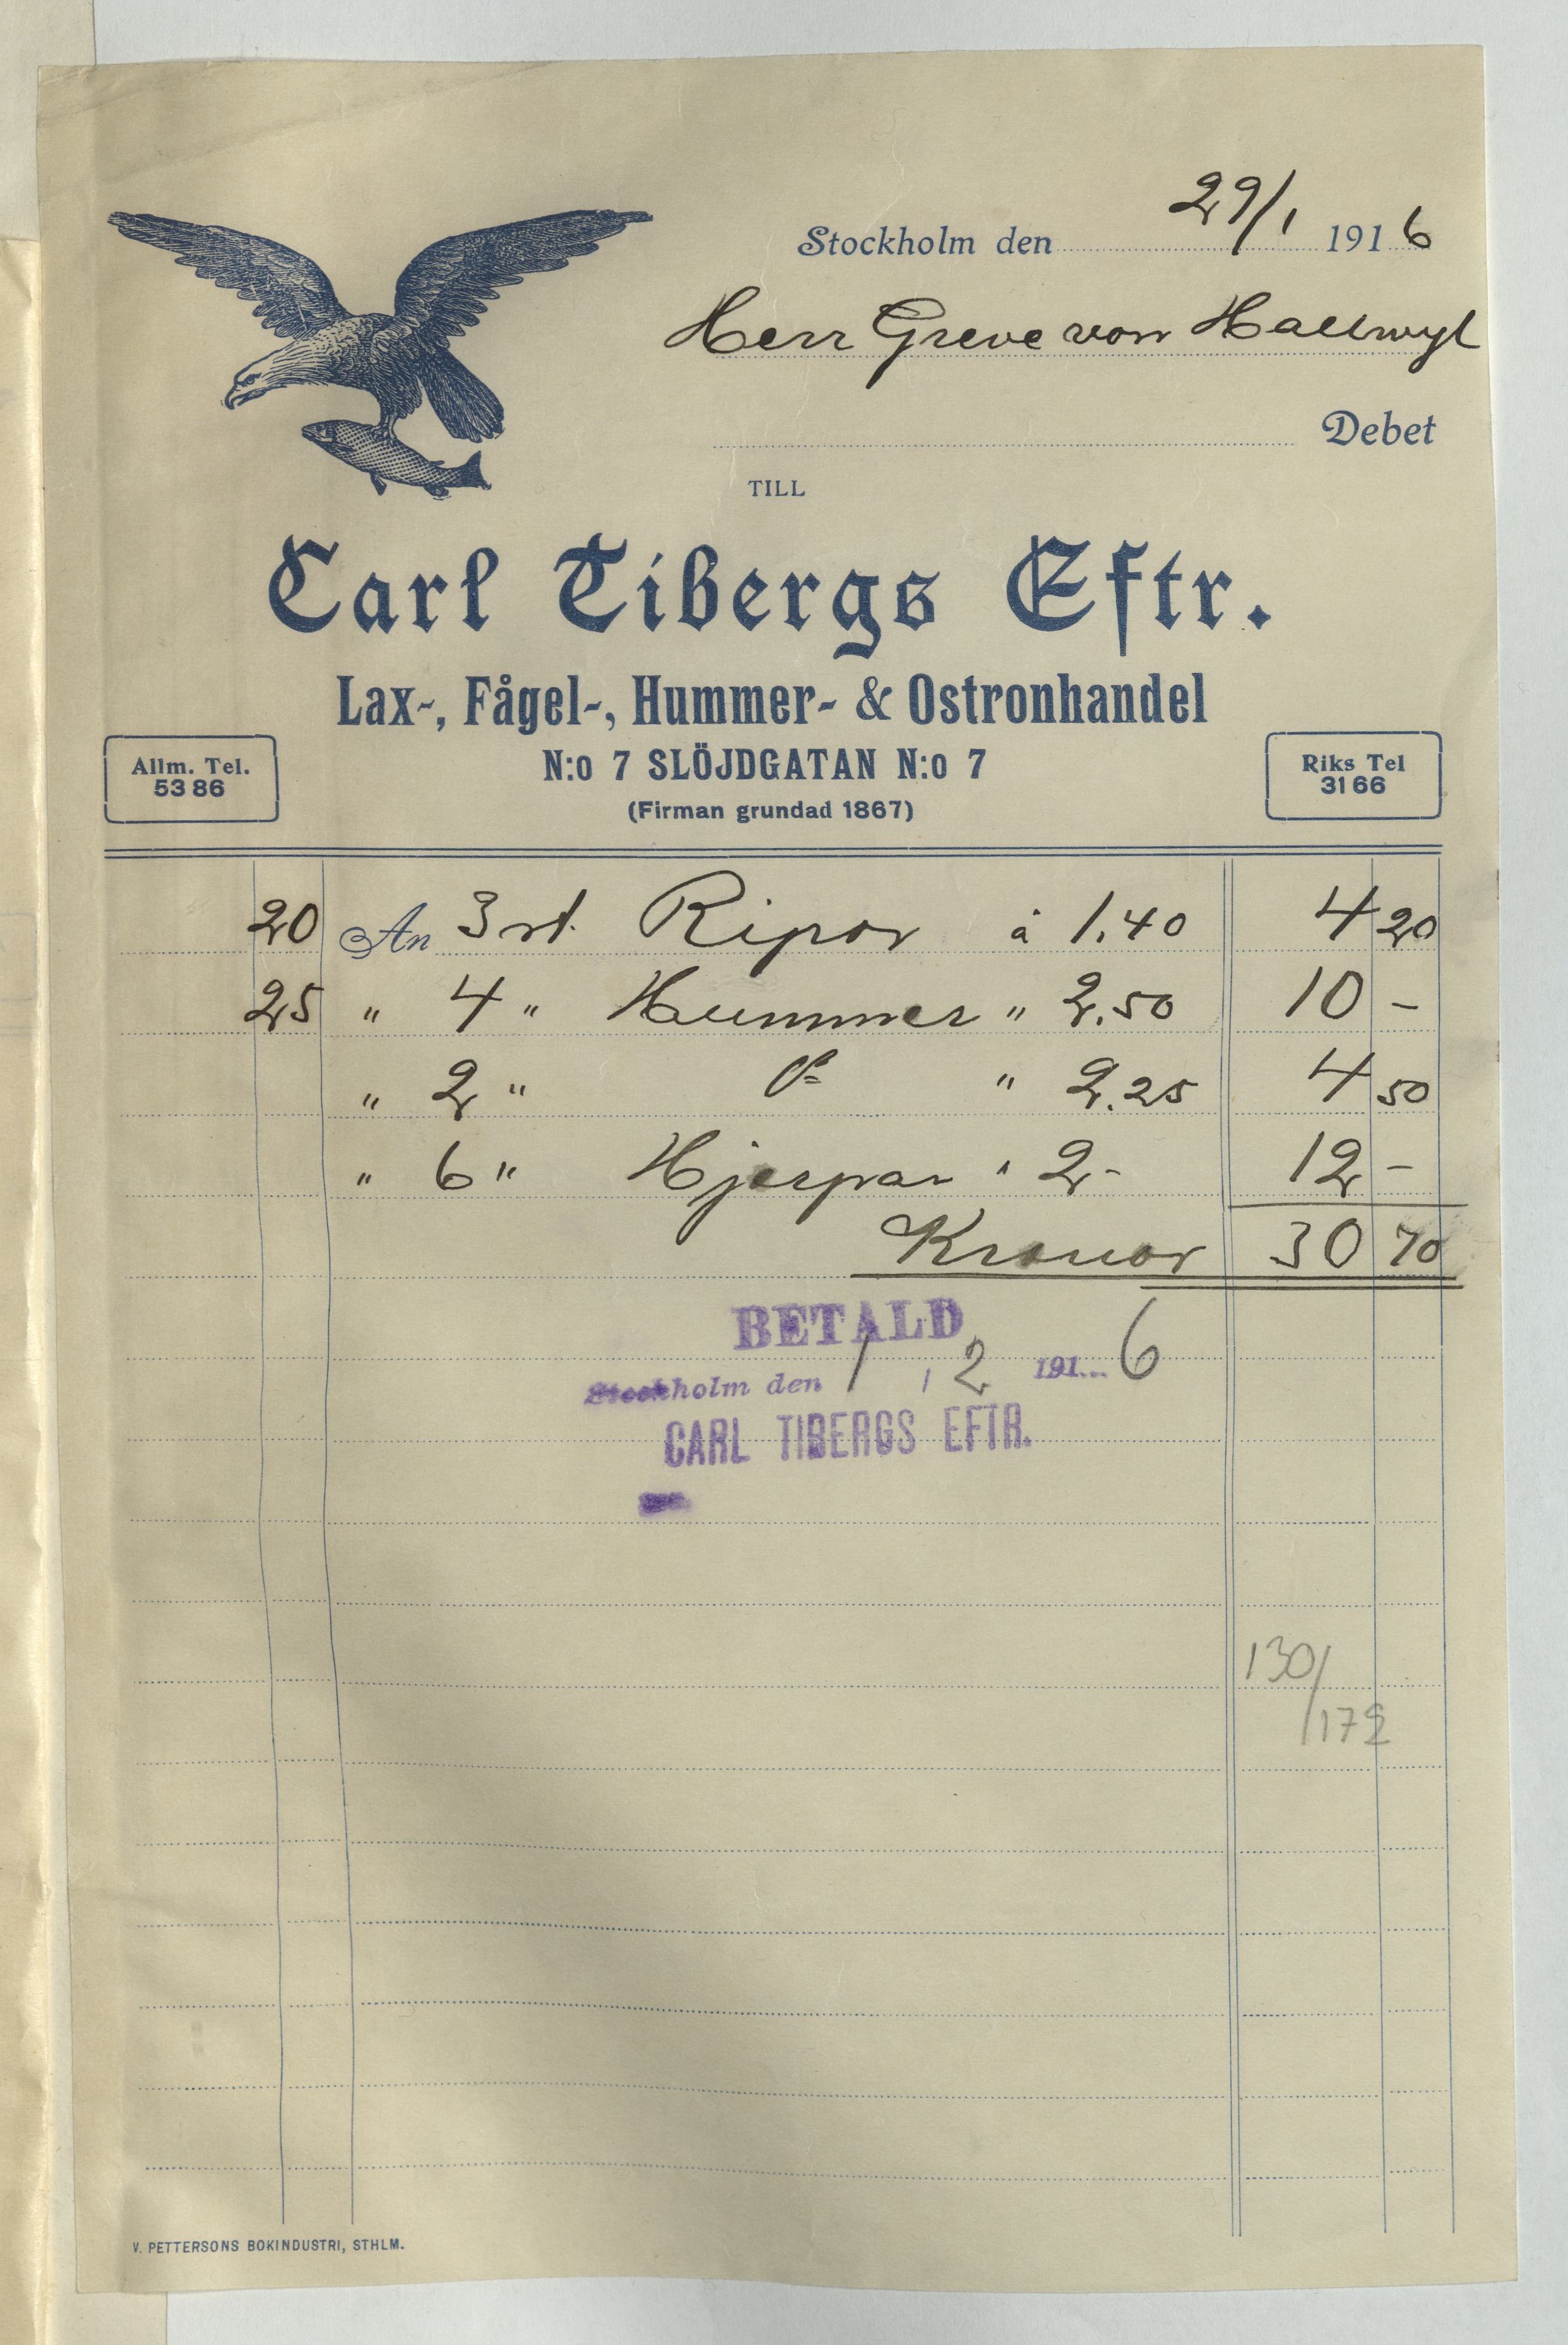 Stockholm den 29/1 1916
Herr Greve von Hallwyl
Debet
TILL
Carl Tibergs Eftr.
Lax-, Fågel-, Hummer- & Ostronhandel
N:o 7 SLÖJDGATAN N:o 7
(Firman grundad 1867)
Allm. Tel.
5386
Riks Tel
3166
20 An 3 st. Ripor à 1.40 4 20
25 " 4 " Hummer " 2.50 10 -
" 2 " " 2.25 4 50
" 6 " Hjerpar " 2- 12 -
Kronor 30 70
BETALD
Stockholm den 1 / 2 191 6
CARL TIBERGS EFTR.
130/
/172
V. PETTERSONS BOKINDUSTRI, STHLM.